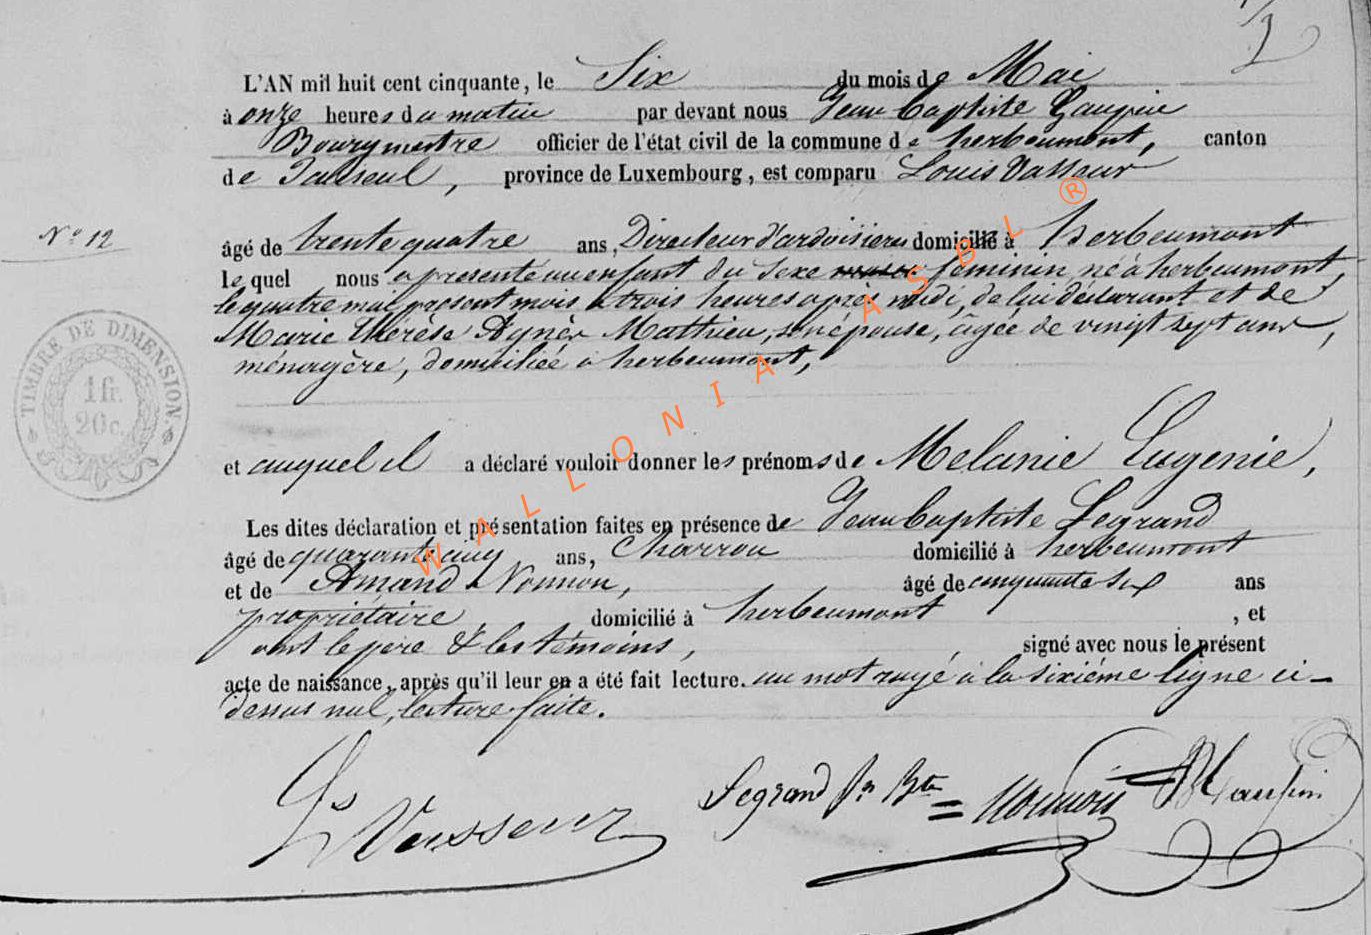 L'AN mil huit cent cinquante, le Six du mois de Mai
à onze heures du matin par devant nous Jean Baptiste
Bourgmestre officier de l'état civil de la commune de herbeumont, canton
de Paliseul, province de Luxembourg, est comparu Louis Vasseur
N° 12
âgé de trente quatre ans, Directeur d'ardoisières domicilié à herbeumont
lequel nous a présenté un enfant du sexe féminin né à herbeumont,
le quatre mai présent mois à trois heures après midi, de lui déclarant et de
Marie Thérèse Agnès Mathieu, son épouse, âgée de vingt sept ans,
ménagère, domiciliée à herbeumont,
TIMBRE DE DIMENSION.
1 fr.
20 c.
et auquel il a déclaré vouloir donner les prénoms de Melanie Eugenie,
Les dites déclaration et présentation faites en présence de Jean baptiste Legrand
âgé de quarante cinq ans, Charron domicilié à herbeumont
et de Amand Nonnon, âgé de cinquante six ans
propriétaire, domicilié à herbeumont, et
ont le père & les témoins, signé avec nous le présent
acte de naissance, après qu'il leur en a été fait lecture. un mot rayé à la sixième ligne ci-
dessus nul, lecture faite.
Ls Vasseur
Legrand Jn Bte
Nonnon
WALLONIA ASBL ®